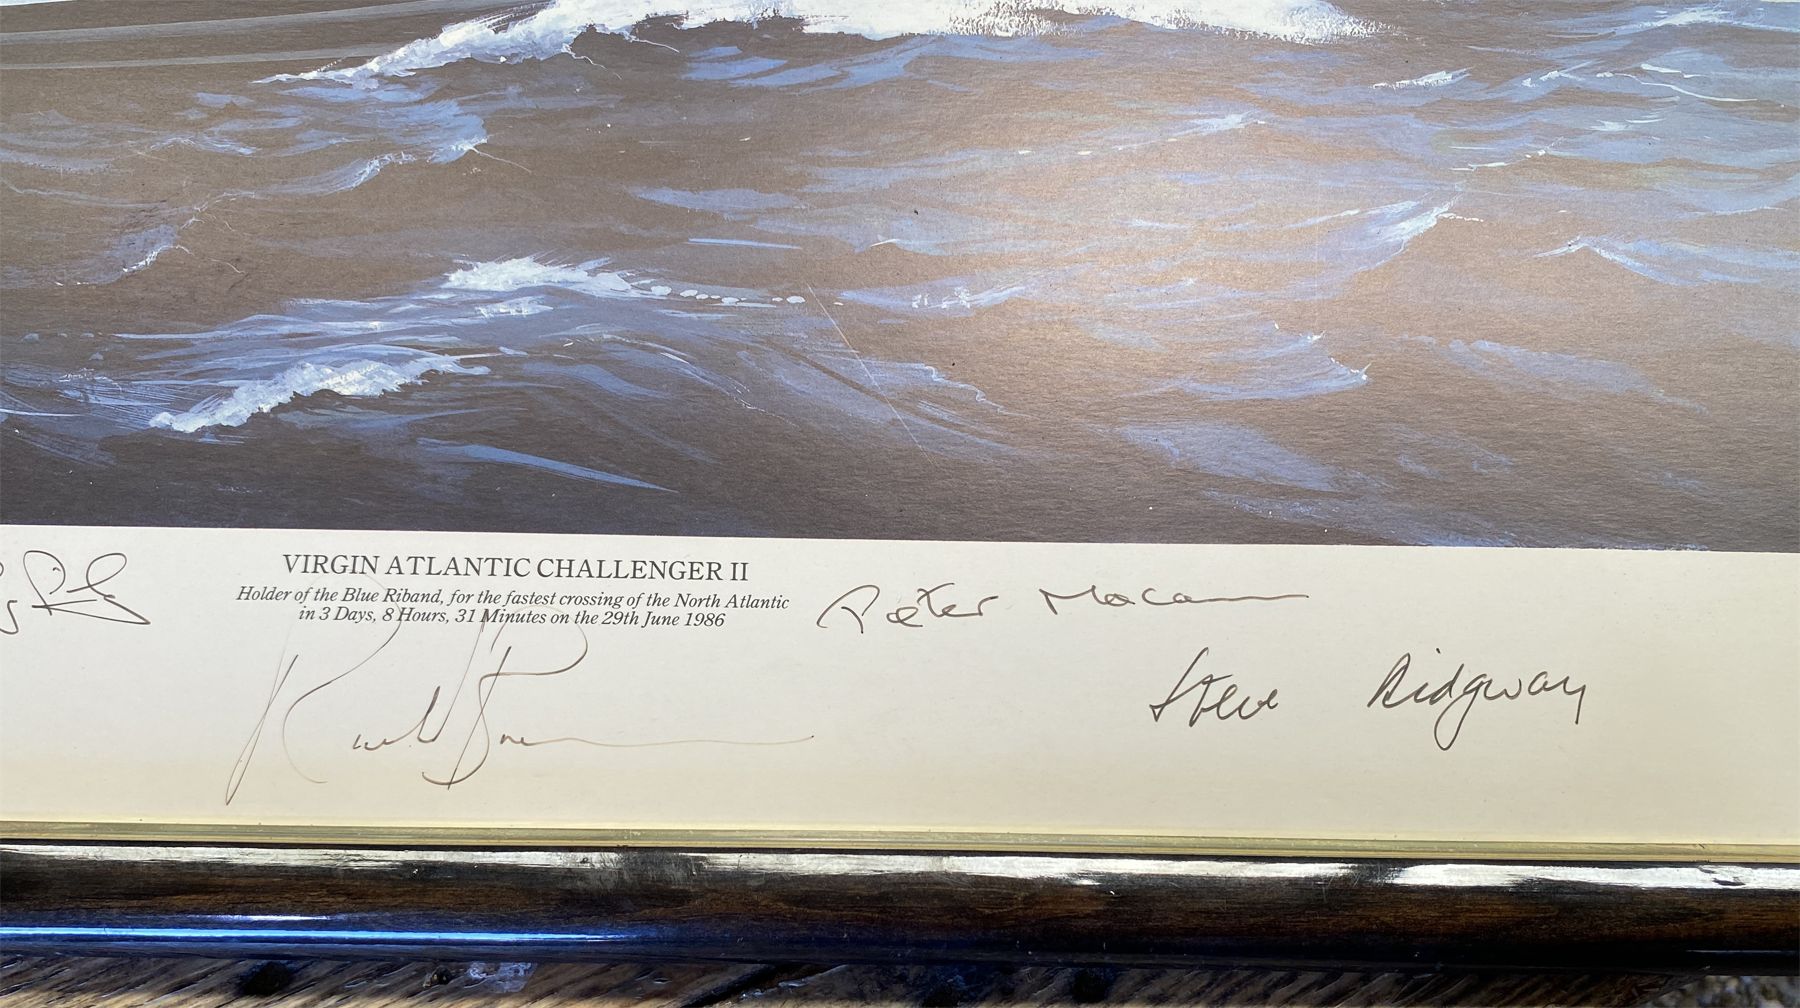 VIRGIN ATLANTIC CHALLENGER II
Holder of the Blue Riband, for the fastest crossing of the North Atlantic
in 3 Days, 8 Hours, 31 Minutes on the 29th June 1986
Peter Macann
Steve Ridgway